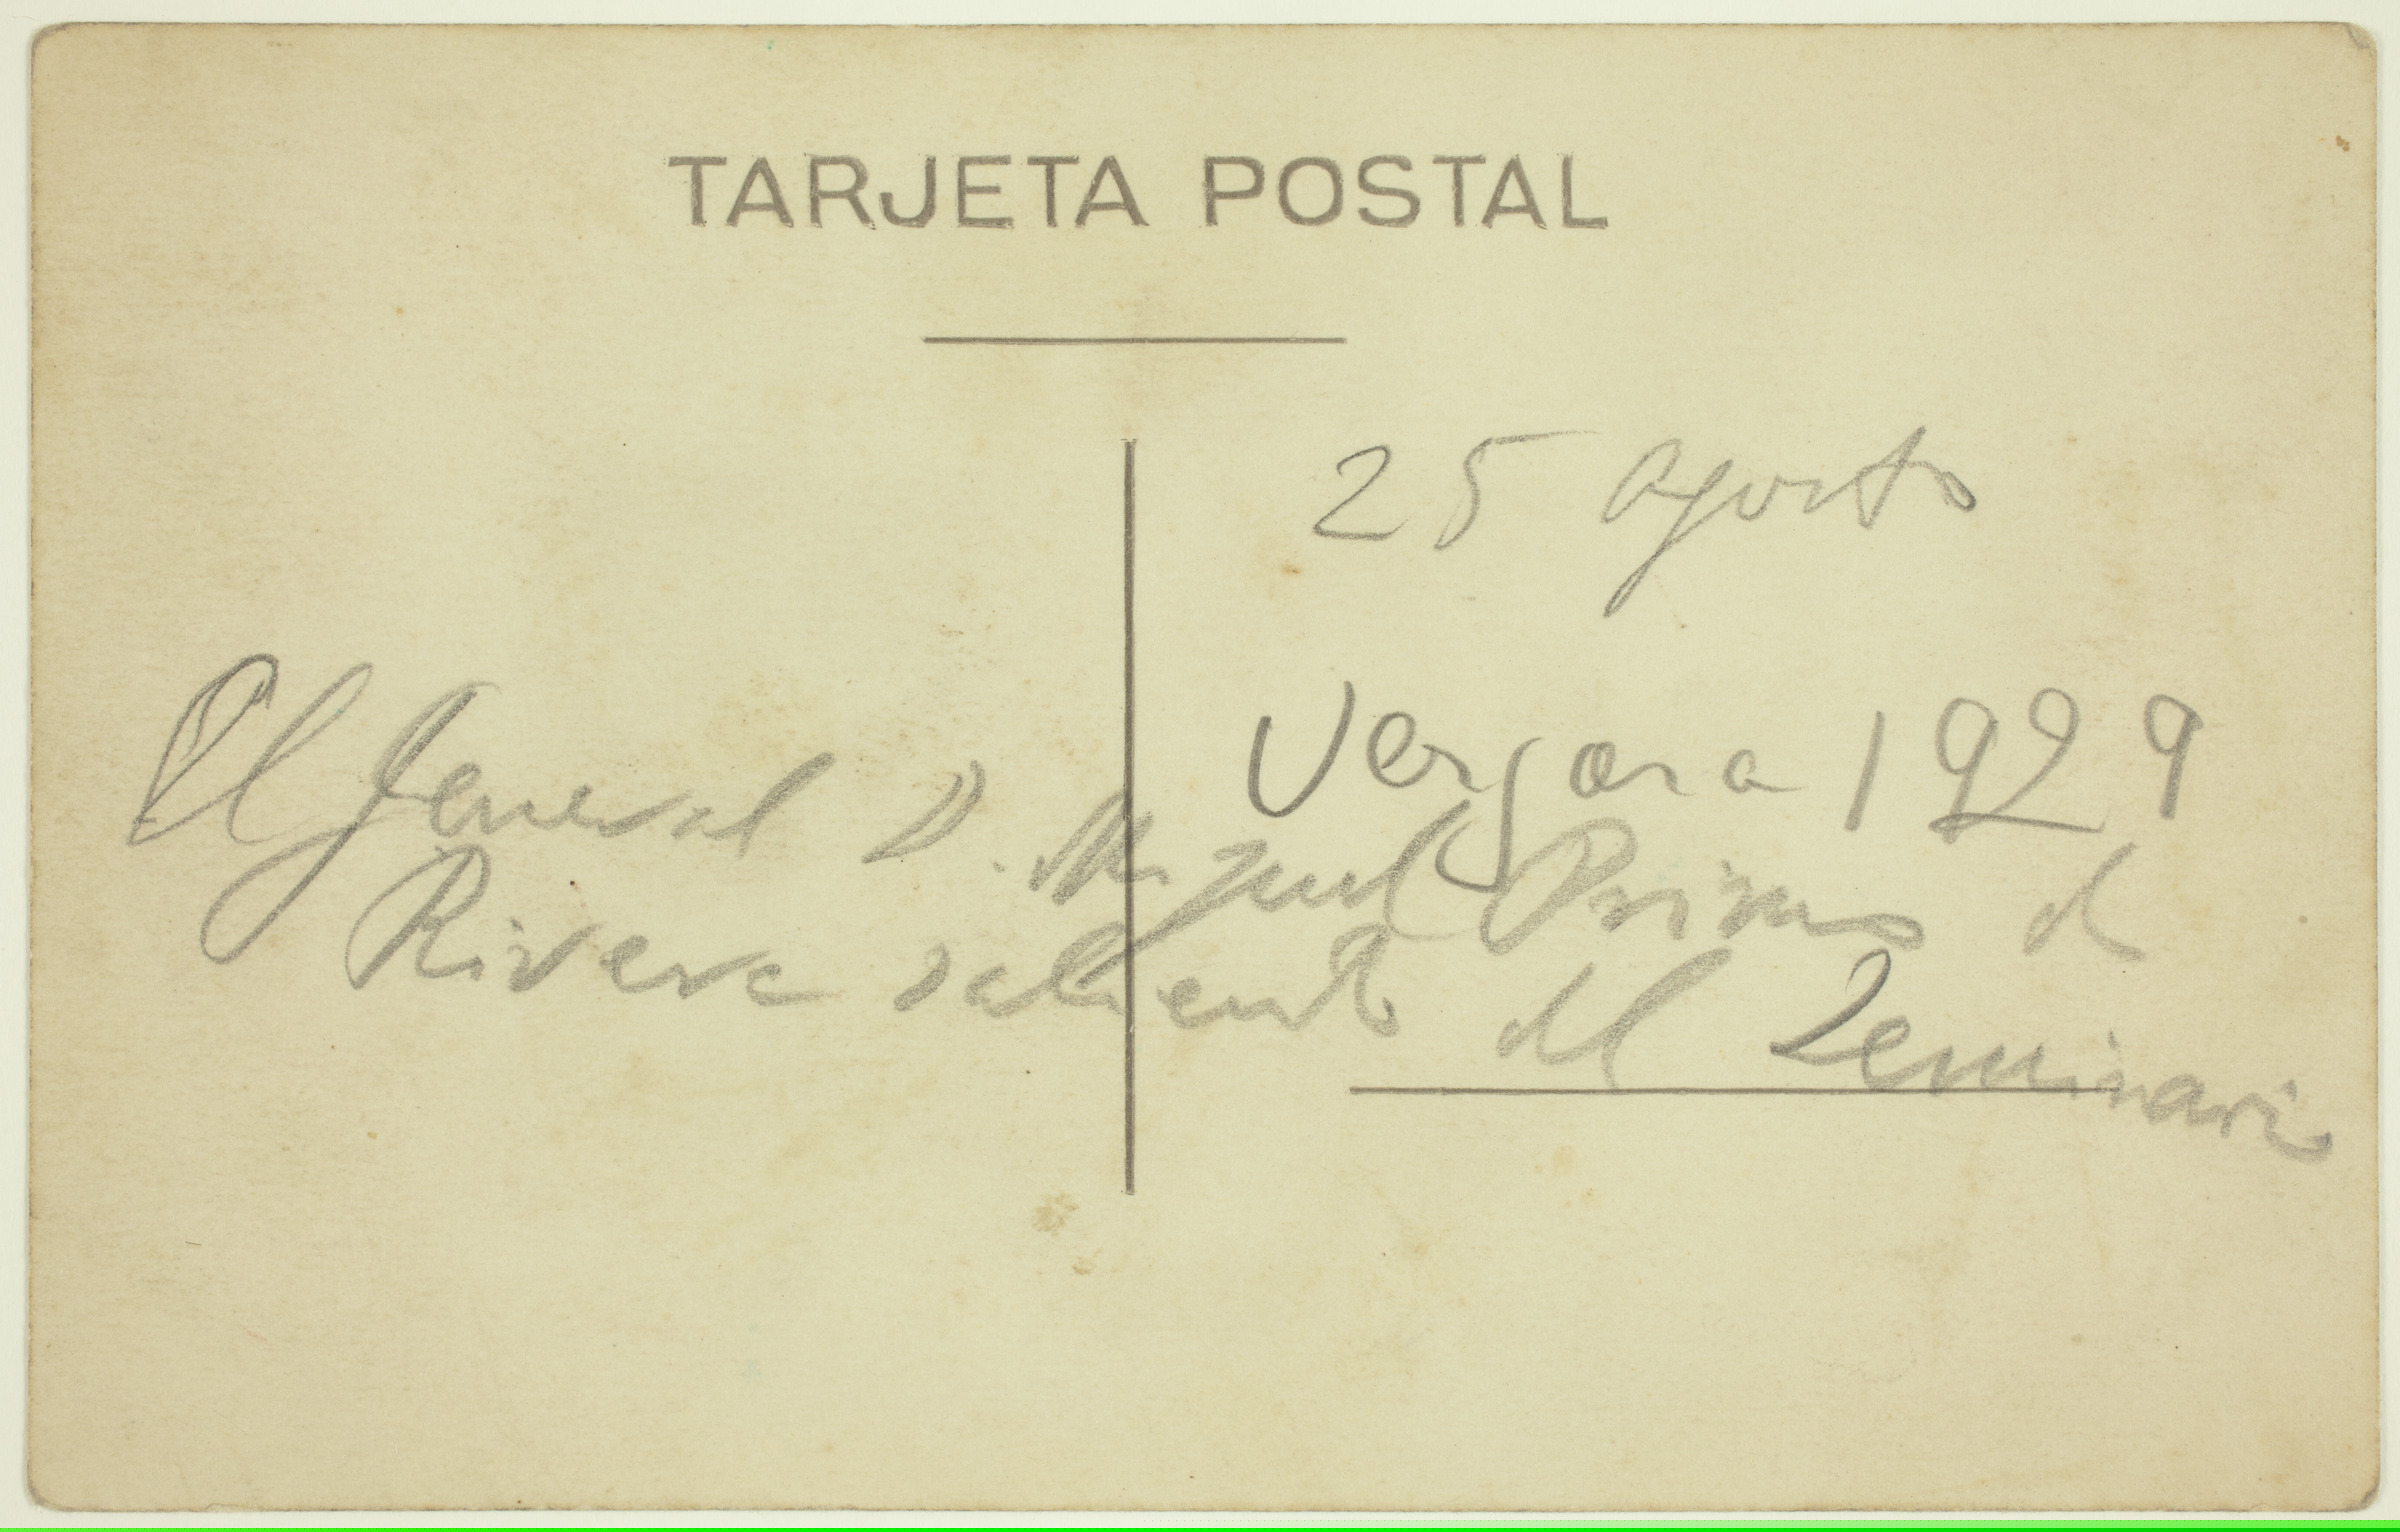 TARJETA POSTAL
25 agosto
Vergara 1929
El General D. Miguel Primo de
Rivera saliendo del Seminario